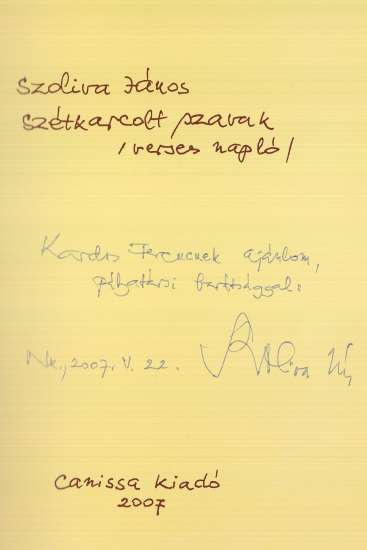 Szoliva János
Szétkarcolt szavak
/verses napló/
Kardos Ferencnek ajánlom,
pályatársi barátsággal:
Nk., 2007. V. 22.
Canissa Kiadó
2007